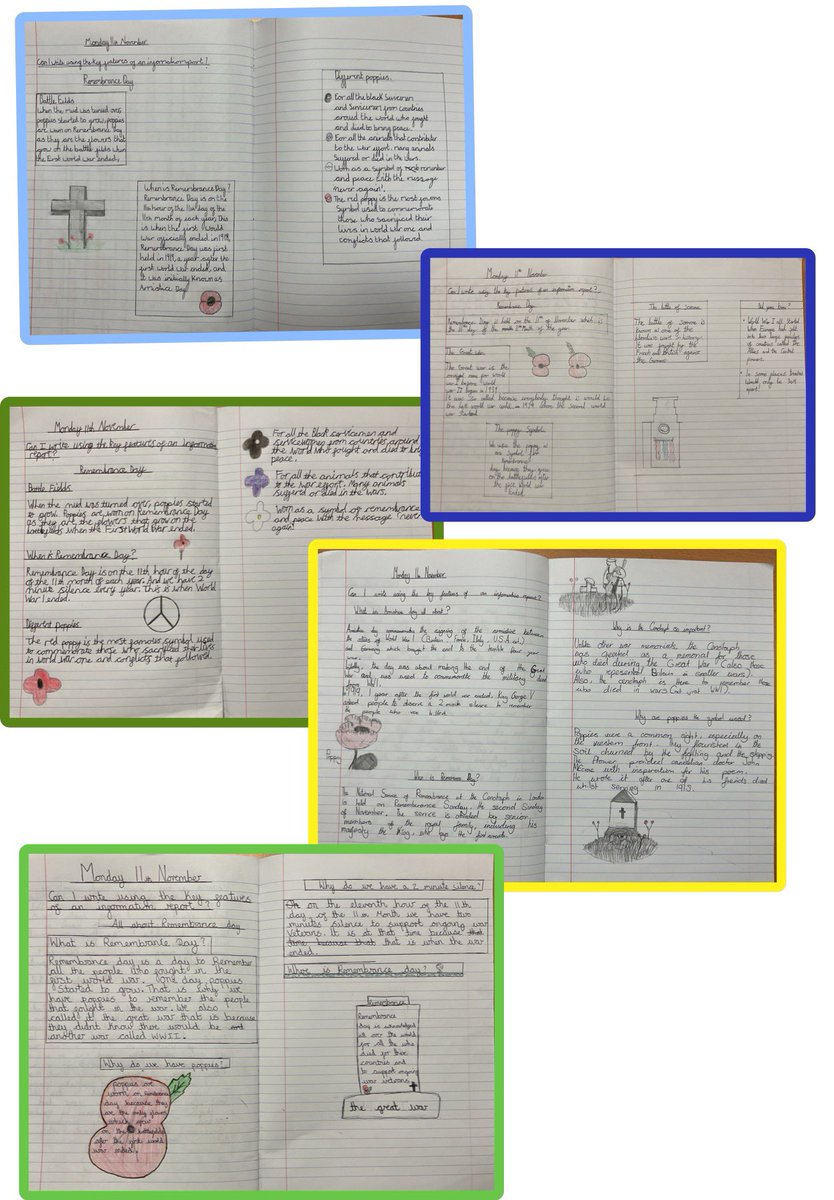 Monday 11th November
Can I write using the key features of an information report?
Remembrance Day
Battle Fields
When the mud was turned over,
poppies started to grow, poppies
are worn on Remembrance Day
as they are the flowers that
grow on the battle fields when
the First world war ended.
When is Remembrance Day?
Remembrance Day is on the
11th hour of the 11th day of the
11th month of each year. This
is when the first World
War officially ended in 1918.
Remembrance Day was first
held in 1919, a year after the
first world war ended, and
it was initially known as
Armistice Day
Different poppies.
For all the black Servicemen
and Servicemen from countries
around the world who fought
and died to bring peace.
For all the animals that contribute
to the war effort. many animals
suffered or died in the wars.
Worn as a symbol of remember
and peace with the message
never again'.
The red poppy is the most famous
symbol used to commemorate
those who sacrificed their
lives in world war one and
conflicts that followed.
Monday 11th November
Can I write using the key features of an information report?
Remembrance Day
Remembrance Day is held on the 11th of November which is
the 11th day of the month 11th Month of the year.
The Great war
The Great war is the
name for world
war 1 before world
war
It was so called because everybody thought it would be
the last world war until 1939 when the second world
war started
The poppy Symbol
We use the poppy as
an Symbol for
Remembrance
day because they grew
on the battlefields after
the first world war
ended
The battle of somme
The battle of somme is
known as one of the
wars in history.
It was fought by the
French and British against
the Germans
Did you know?
World War 1 all started
when Europe had split
into two large groups
of countries called The
Allies and the Central
powers.
In some places trenches
would only be
apart!
Monday 11th November
Can I write using the key features of an information
report?
Remembrance Day
Battle Fields
When the mud was turned over, poppies started
to grow. Poppies are worn on Remembrance Day
as they are the flowers that grow on the
when the First World War ended.
When is Remembrance Day?
Remembrance Day is on the 11th hour of the day
of the 11th month of each year. And we have 2
minute silence every year. This is when World
War 1 ended.
Different poppies
The red poppy is the most famous symbol used
to commemorate those who sacrificed their lives
in world war one and conflicts that followed.
For all the Black servicemen and
servicewomen from countries around
the world who fought and died to bring
peace.
For all the animals that contribut
to the war effort. Many animals
suffered or died in the wars.
Worn as a symbol of remembrance
and peace with the message "never
again!
Monday 11th November
Can I write using the key features of an information report?
What is Armistice day all about?
Armistice day commemorates the signing of the armistice between
the allies of World War 1 (Britain, France, Italy, U.S.A ect.)
and Germany which brought the end to the four year
war.
Initially, the day was about making the end of the Great
War and was used to commemorate the military died
from WW1.
In 1919, 1 year after the first world war ended, King George V
asked people to observe a 2 minute silence to remember
the people who were killed.
Poppy
When is Remembrance Day?
The National Service of Remembrance at the Cenotaph in London
is held on Remembrance Sunday, the second Sunday
of November. The service is attended by senior
members of the royal family, including his
majesty the King, who lays the first wreath.
Why is the Cenotaph so important?
Unlike other war memorials, the Cenotaph
was created as a memorial for those
who died during the Great War (also those
who represented Britain in smaller wars).
Also the cenotaph is there to remember those
who died in wars (not just WW1).
Why are poppies the symbol used?
Poppies were a common sight, especially on
the western front. They flourished in the
soil churned by the fighting and the shelling.
The flower provided canadian doctor John
McCrae with inspiration for his poem.
He wrote it after one of his friends died
whilst serving in 1915.
Monday 11th November
Can I write using the key features
of an information report?
All about Remembrance day
What is Remembrance Day?
Remembrance day is a day to Remember
all the people who fought in the
first world war. One day poppies
started to grow. That is why we
have poppies to remember the people
that fought in the war. We also
called it the great war that is because
they didn't know there would be
another war called WWII.
Why do we have poppies?
poppies are
worn on Remembrance
day because they
are the only flowers
which grow
on the battlefields
after the first world
war ended.
Why do we have a 2 minute silence?
On the eleventh hour of the 11th
day of the 11th Month we have two
minutes silence to support ongoing war
Veterans. It is at that time because that
time because that that is when the war
ended.
Where is Remembrance day?
Remembrance
Remembrance
day is acknowledged
all over the world
for all the who
died for their
countries and
to support ongoing
war veterans.
the great war